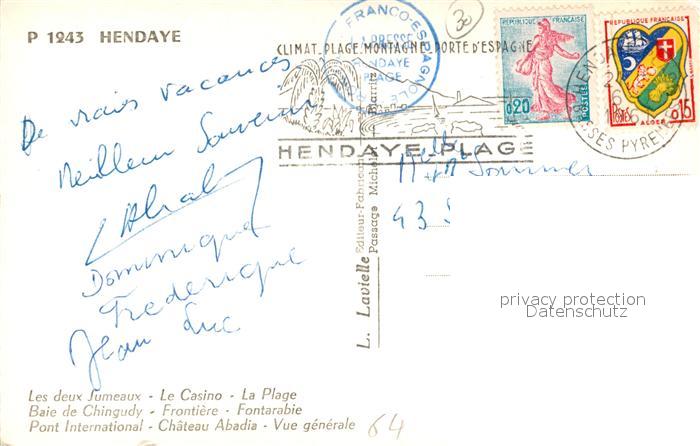 P 1243 HENDAYE
FRANCO-ESPAGNOLE
LA PRESSE
HENDAYE
PLAGE
30
CLIMAT. PLAGE. MONTAGNE. PORTE d'ESPAGNE
HENDAYE-PLAGE
REPUBLIQUE FRANÇAISE
0,20
POSTES
REPUBLIQUE FRANÇAISE
POSTES
0,15
ALGER
BSES PYRENEES
De vrais vacances
Meilleur Souvenir
Dominique
Frederique
Jean Luc
Sommer
43
L. Lavielle Editeur-Fabricant
Passage Michel Biarritz
privacy protection
Datenschutz
Les deux Jumeaux - Le Casino - La Plage
Baie de Chingudy - Frontière - Fontarabie
Pont International - Château Abadia - Vue générale
64